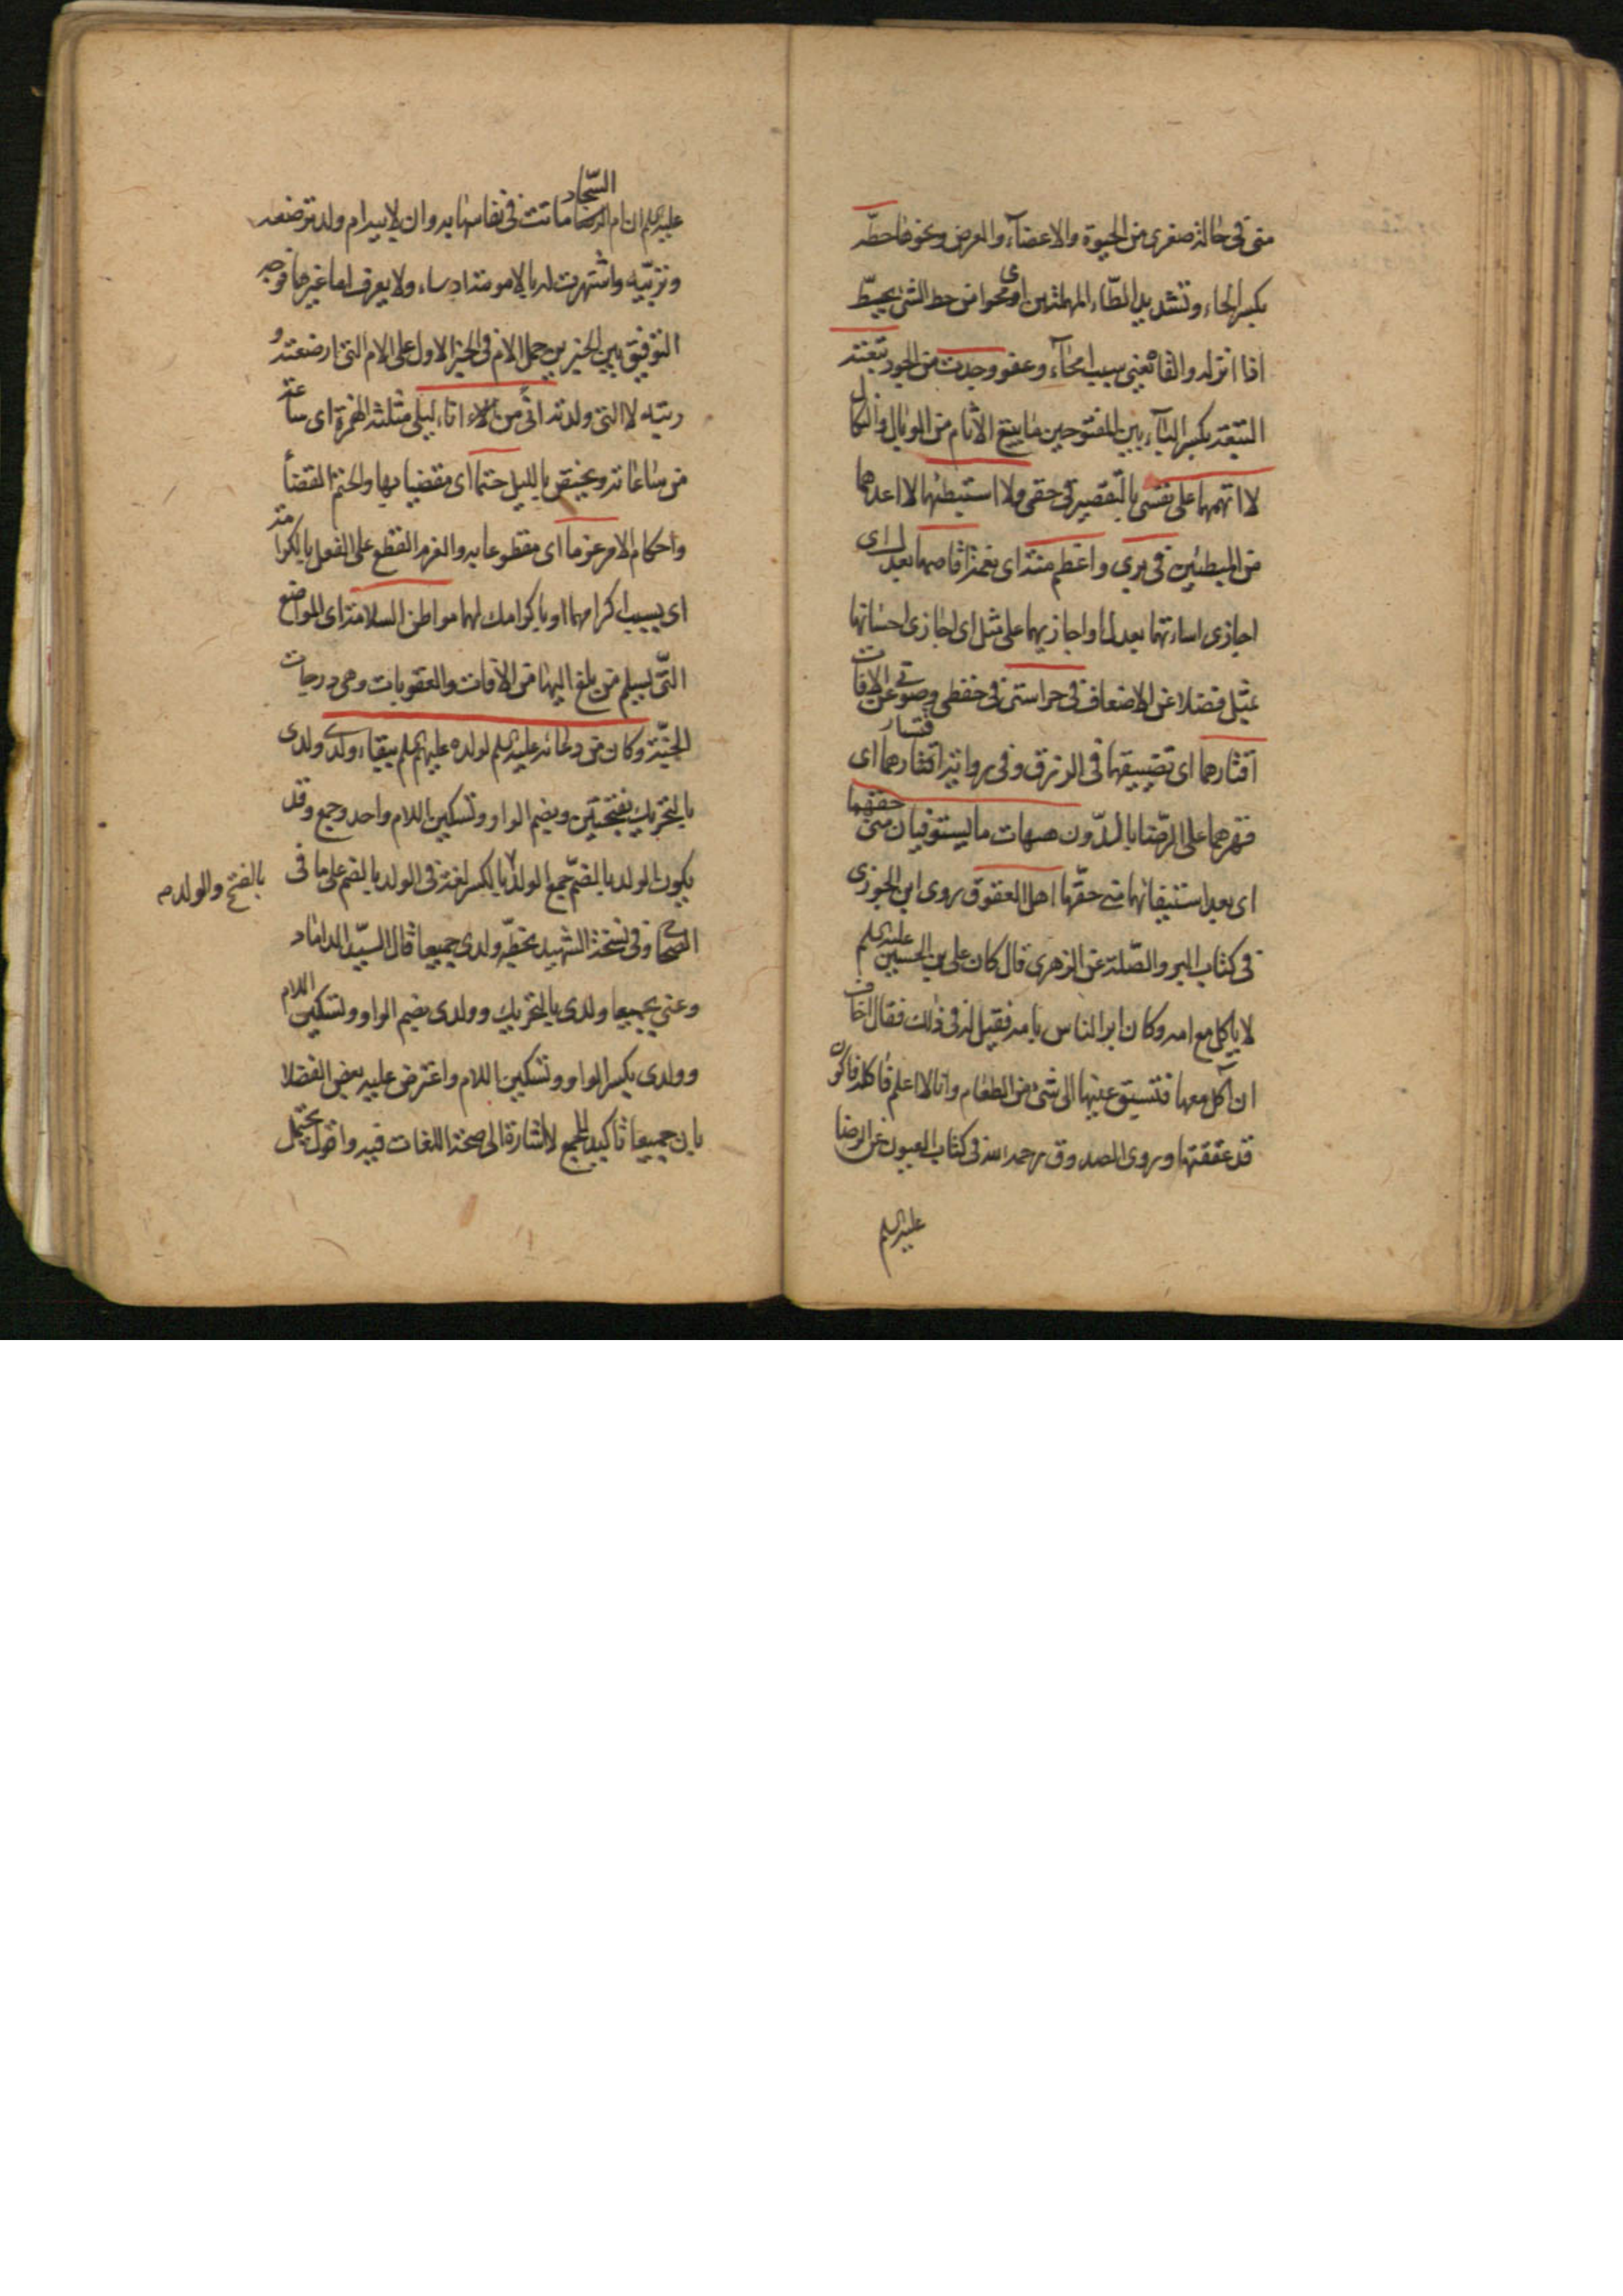 منى فى حالة صغرى من الحيوة والاعضاء والعرض ونحوها حطّة
بكسر الحاء وتشديد الطّاء المهملتين اى محوا من حط الشئ يحطّ
اذا انزله والقاه يعنى سبب امحاء وعفو وجدت من الجود تبعته
التبعة بكسر الباء بين المفتوحين ما يتبع الآثام من الوبال والنكال
لا اتهمهما على نفسى بالتقصير فى حقى ولا استبطئهما لا اعدهما
من المبطئين فى برى واعظم منة اى نعمة اقاصهما بعدل اى
اجازى اساءتهما بعدلها واجازيهما على مثل اى اجازى احسانهما
بمثل فضلا عن الاضعاف فى حراستى فى حفظى وصوتى عن الافات
اقتارهما اى تضييقهما فى الرزق وفى رواية اقتسارهما اى
قهرهما على الرّضا بالدّون هيهات ما يستوفيان منى حقهما
اى بعد استيفائهما منى حقّهما اهل العقوق روى ابن الجوزى
فى كتاب البر والصّلة عن الزهرى قال كان على بن الحسين عليه السلم
لا ياكل مع امه وكان ابر الناس بامه فقيل له فى ذلك فقال اخاف
ان آكل معها فتسبق عينها الى شئ من الطعام وانا لا اعلم فاكله فاكون
قد عققتها وروى الصدوق رحمه الله فى كتاب العيون عن الرضا
عليه السلم
عليه السلم ان ام السّجاد ماتت فى نفاسها به وان لابيه ام ولد ترضعه
وتربّيه واشتهرت له بالامومة اد ساء ولا يعرف اما غيرها فوجه
التوفيق بين الخبرين حمل الام فى الخبر الاول على الام التى ارضعته و
ربته لا التى ولدته انًى من الاء اناء ليلى مثلثة الهمزة اى ساعة
من ساعاته ويختص بالليل حتما اى مقضيا بها والحتم القضاء
واحكام الامر عزما اى مقطوعا به والعزم القطع على الفعل بالكرامة
اى بسبب اكرامهما او باكرامك لهما مواطن السلامة اى المواضع
التّى يسلم من بلغ اليها من الافات والعقوبات وهى درجات
الجنّة وكان من دعائه عليه السلم لولده عليهم السلم ببقاء ولدى ولدى
بالتحريك بفتحتين وبضم الواو وتسكين اللام واحد وجمع وقد
يكون الولد بالضمّ جمع الولد بالكسر لغة فى الولد بالضم على ما فى
بالفتح والولد
الصحاح وفى نسخة الشهيد بخطّه ولدى جميعا قال السيّد الداماد
وعنى بجميعا ولدى بالتحريك وولدى بضم الواو وتسكين اللام
وولدى بكسر الواو وتسكين اللام واعترض عليه بعض الفضلا
بان جميعا تاكيد للجمع لا اشارة الى صحة اللغات فيه واقول يحتمل